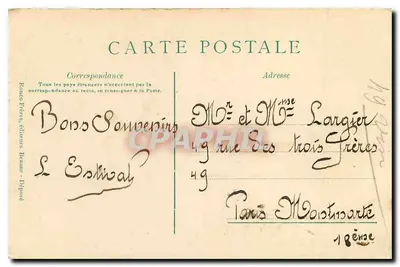 CARTE POSTALE
Correspondance
Tous les pays étrangers n'acceptent pas la
correspondance au recto, se renseigner à la Poste.
Adresse
Bons Souvenirs
L Estival
Mr et Mme Largier
49 rue des trois frères
49
Paris Montmartre
18ème
CPARAMA